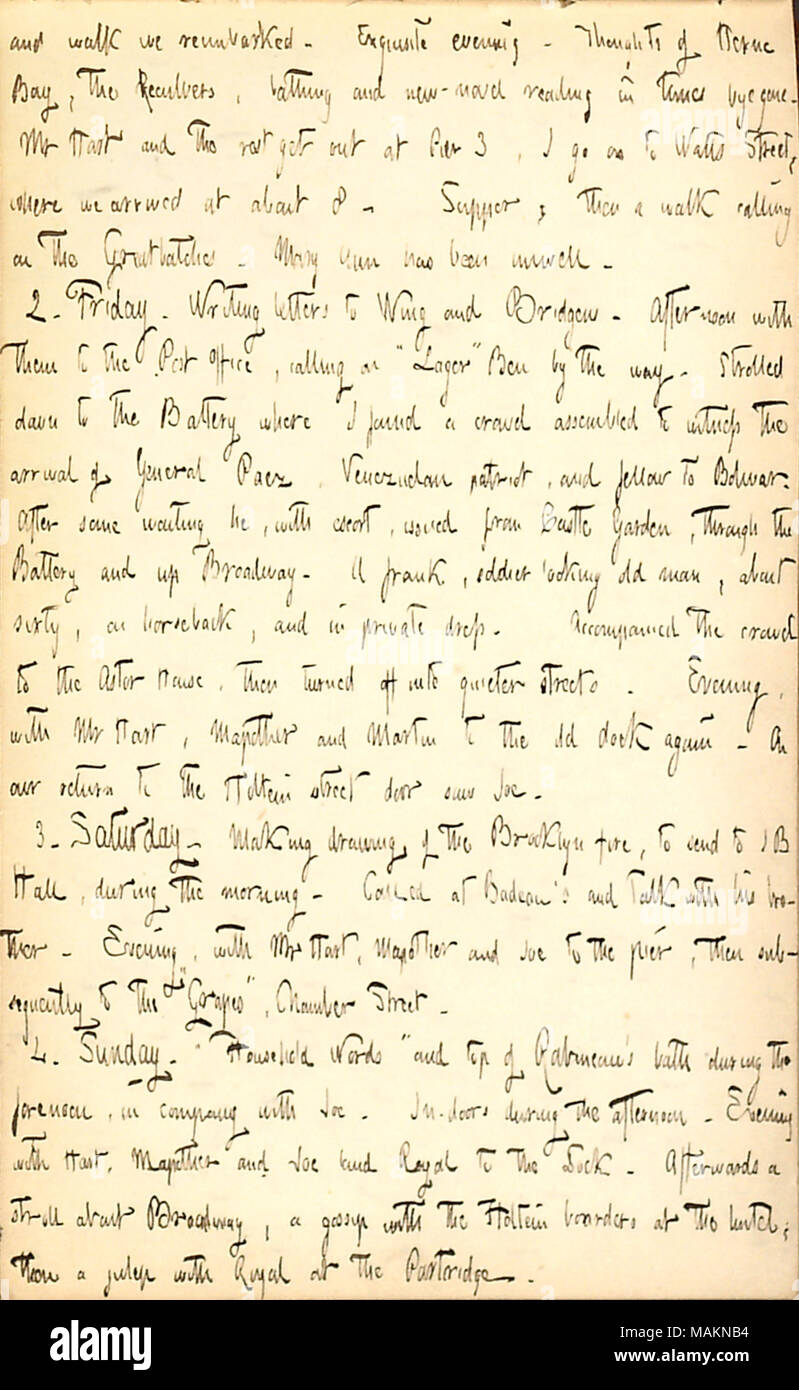 and walk we reembarked. Exquisite evening. Thoughts of Herne
Bay, the Reculvers, bathing and new-novel reading in times byegone.
Mr Hart and the rest get out at Pier 3, I go on to Watts Street,
where we arrived at about 8. Supper; then a walk calling
on the Greatbatches. Mary Ann has been unwell.
2. Friday. Writing letters to Wing and Bridgens. Afternoon with
them to the Post Office, calling on "Lager" Beu by the way. Strolled
down to the Battery where I found a crowd assembled to witness the
arrival of General Paez, Venezuelan patriot, and fellow to Bolivar.
After some waiting he, with escort, issued from Castle Garden, through the
Battery and up Broadway. A frank, soldier looking old man, about
sixty, on horseback, and in private dress. Accompanied the crowd
to the Astor House, then turned off into quieter streets. Evening,
with Mr Hart, Mapother and Martin to the old dock again. On
our return to the Holtein street door saw Joe.
3. Saturday. Making drawing of the Brooklyn fire, to send to J B
Hall, during the morning. Called at Badeau's and talk with his bro-
ther. Evening, with Mr Hart, Mapother and Joe to the pier, then sub-
sequently to the "Grapes", Chamber Street.
4. Sunday. "Household Words" and top of Rabineau's bath during the
forenoon, in company with Joe. In-doors during the afternoon. Evening
with Hart, Mapother and Joe and Royal to the Dock. Afterwards a
stroll about Broadway, a gossip with the Holtein boarders at the hotel;
then a julep with Royal at the Partridge.
alamy
Image ID: MAKNB4
www.alamy.com